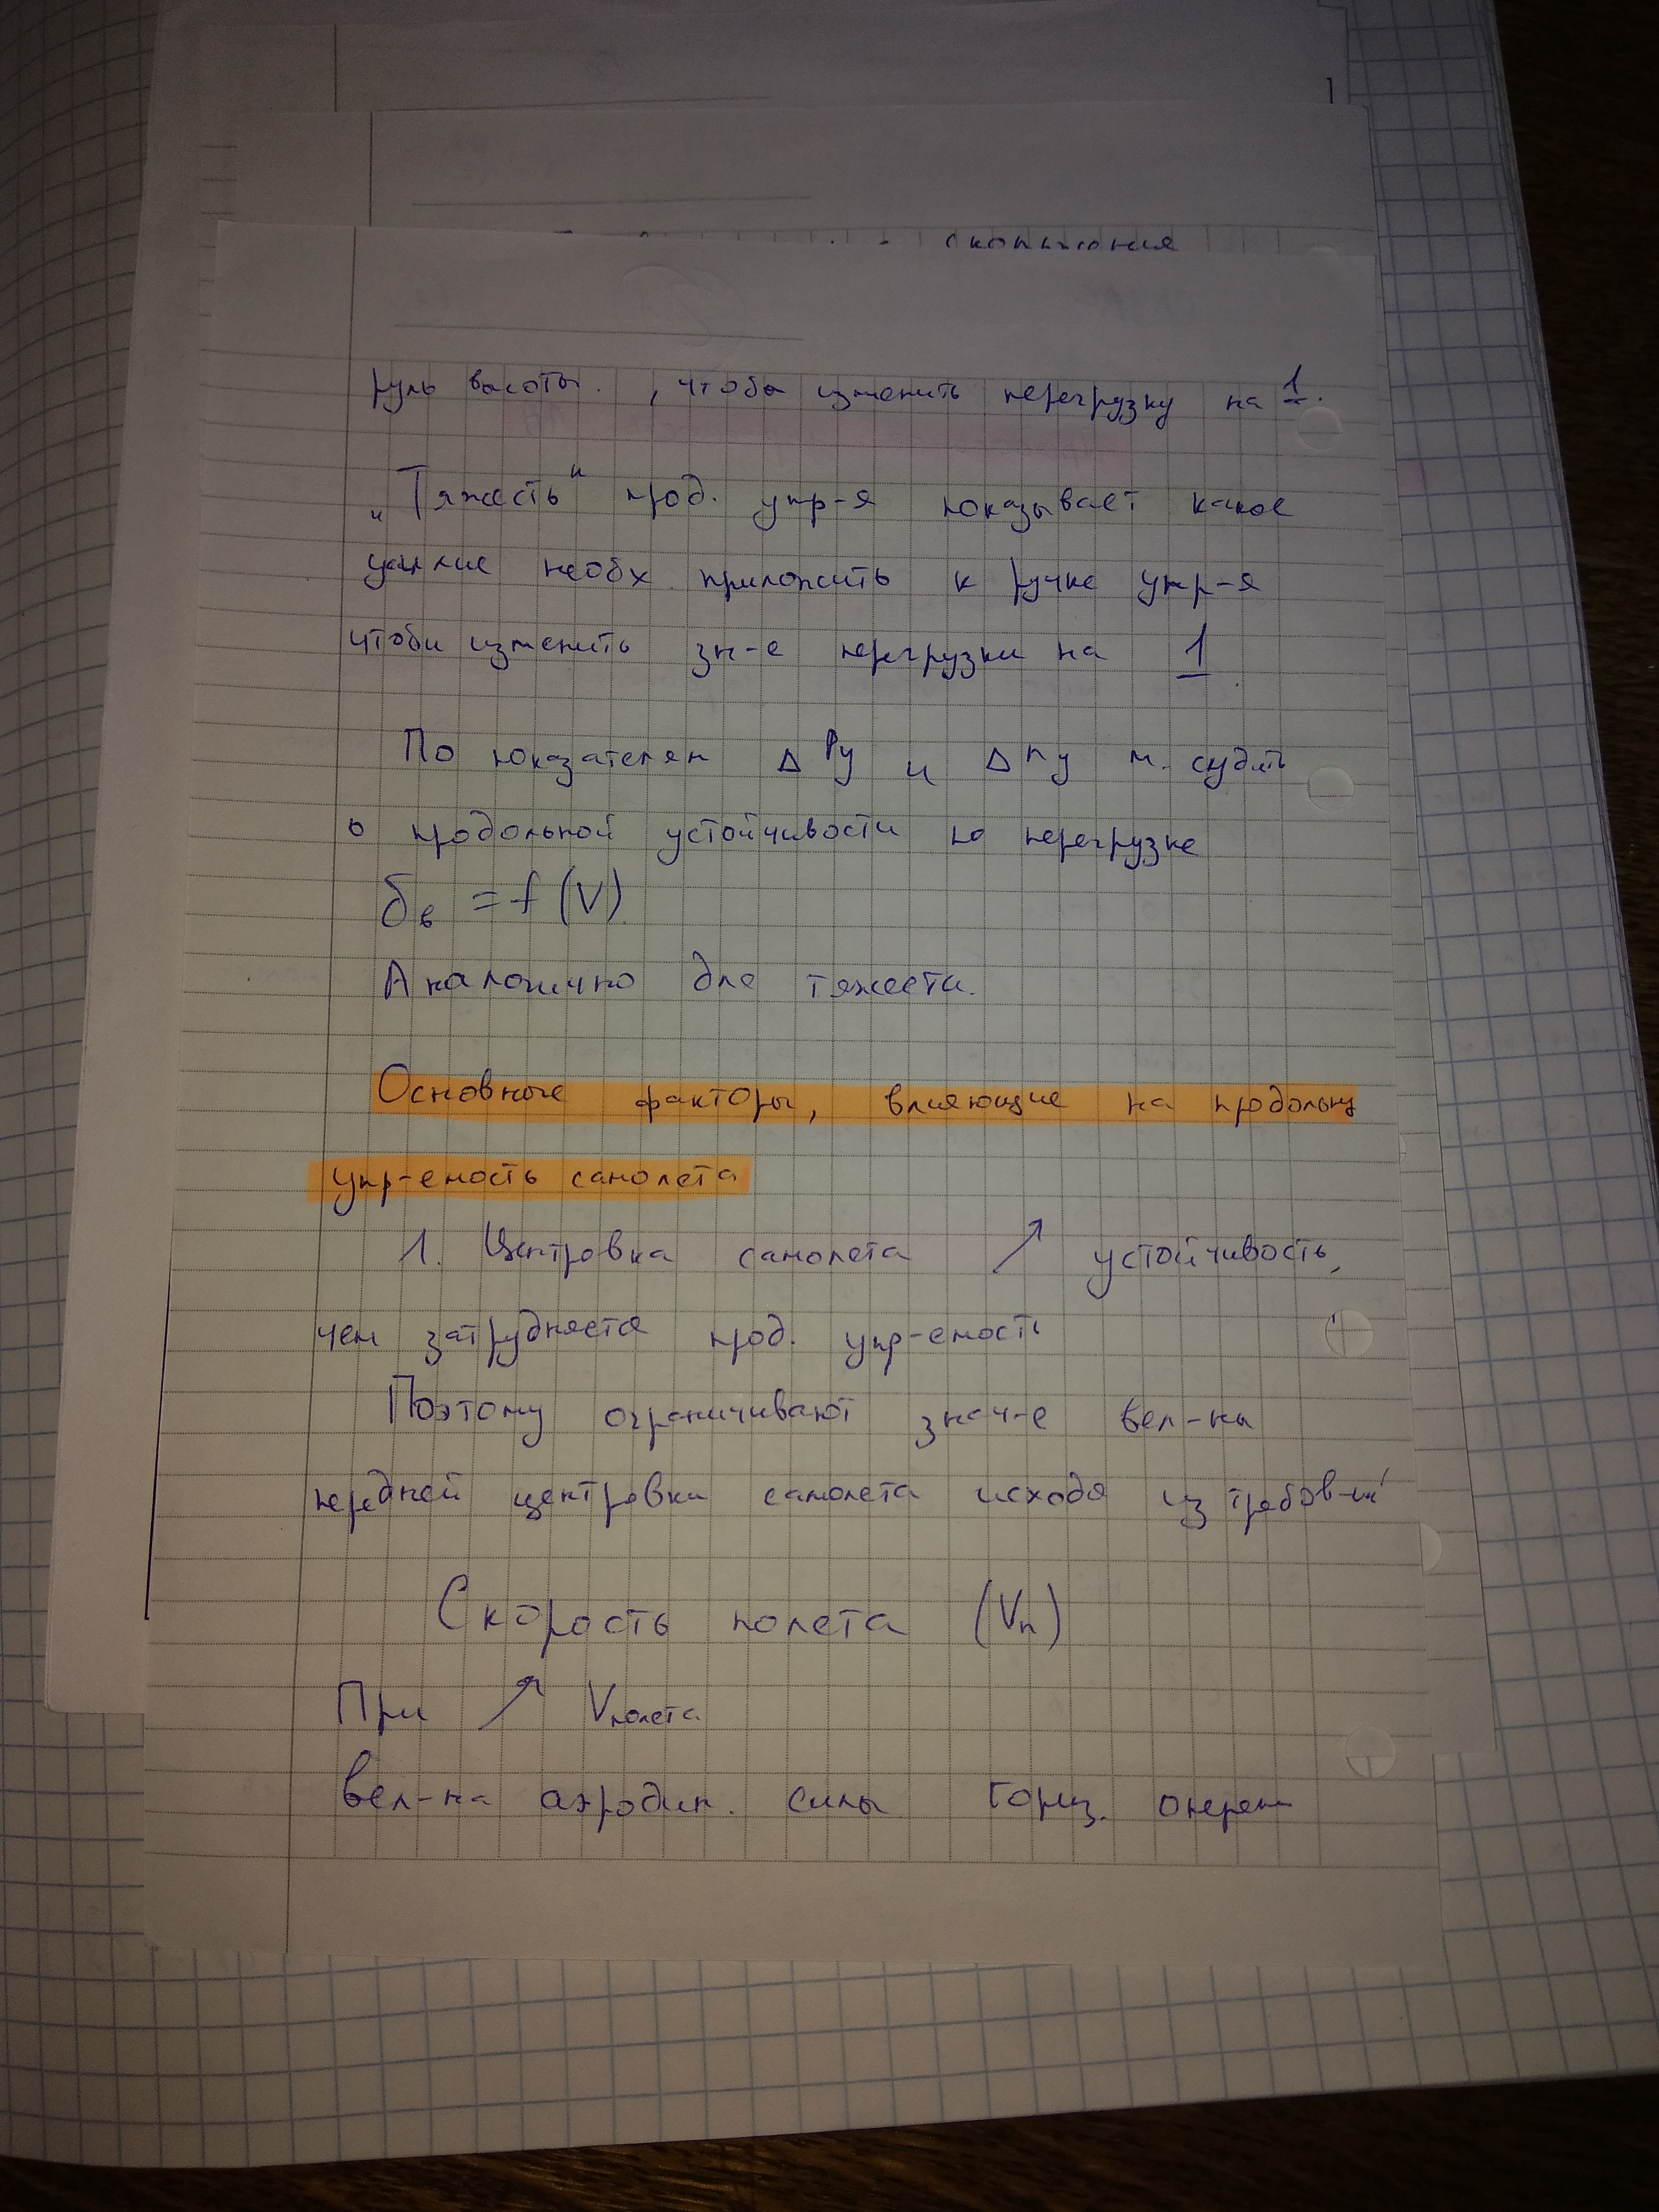 скольжения
руль высоты. , чтобы изменить перегрузку на 1.
„Тяжесть" прод. упр-я показывает какое
усилие необх. приложить к ручке упр-я
чтобы изменить зн-е перегрузки на 1.
По показателям Δ Py и Δ ny м. судить
о продольной устойчивости по перегрузке
δв = f (V)
Аналогично для тяжести.
Основные факторы, влияющие на продольну
упр-емость самолета
1. Центровка самолета ↗ устойчивость,
чем затрудняется прод. упр-емость
Поэтому ограничивают знач-е вел-ны
передней центровки самолета исходя из требов-ий
Скорость полета (Vп)
При ↗ Vполета
вел-на аэродин. силы гориз. оперен